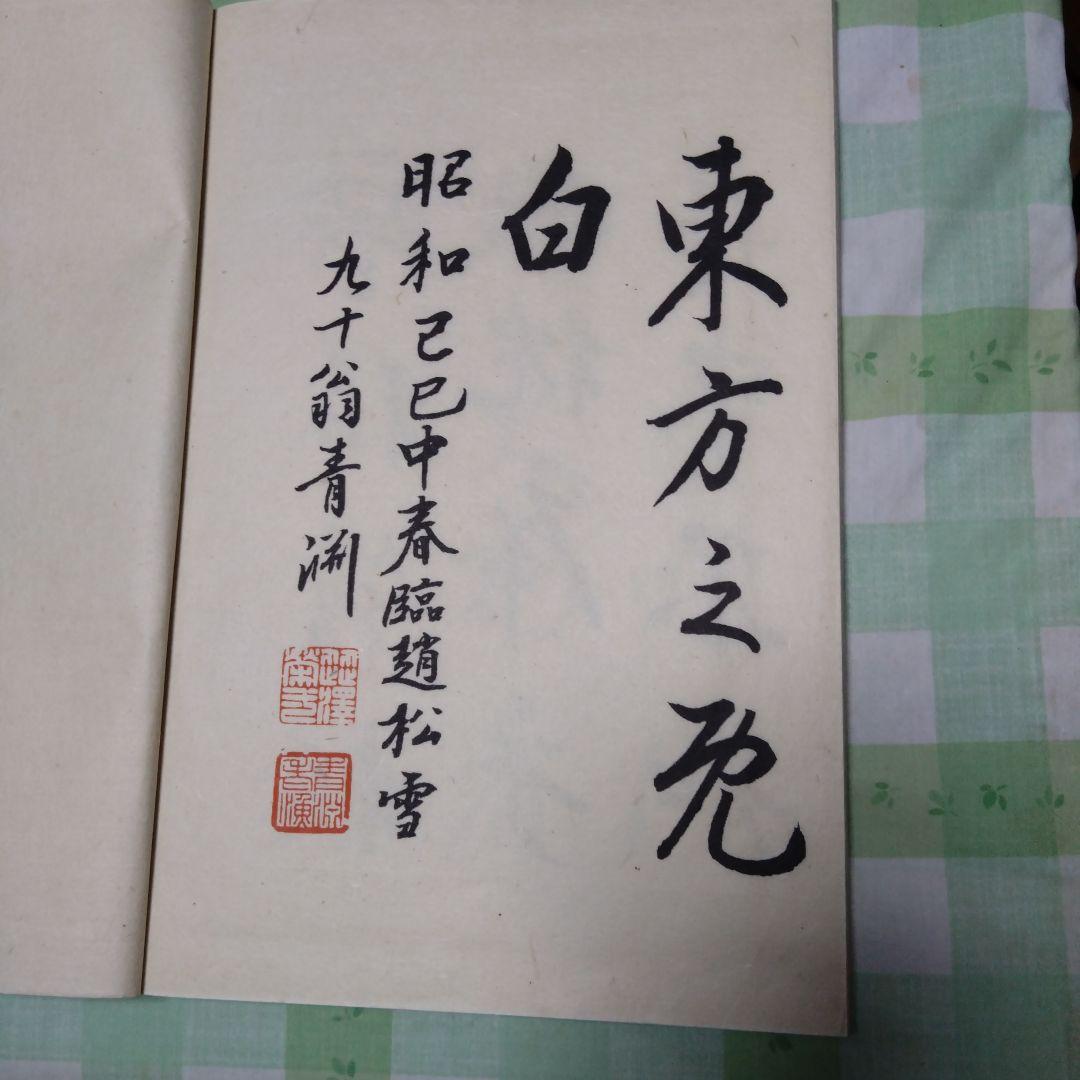 東方之既
白
昭和己巳中春臨趙松雪
九十翁青淵